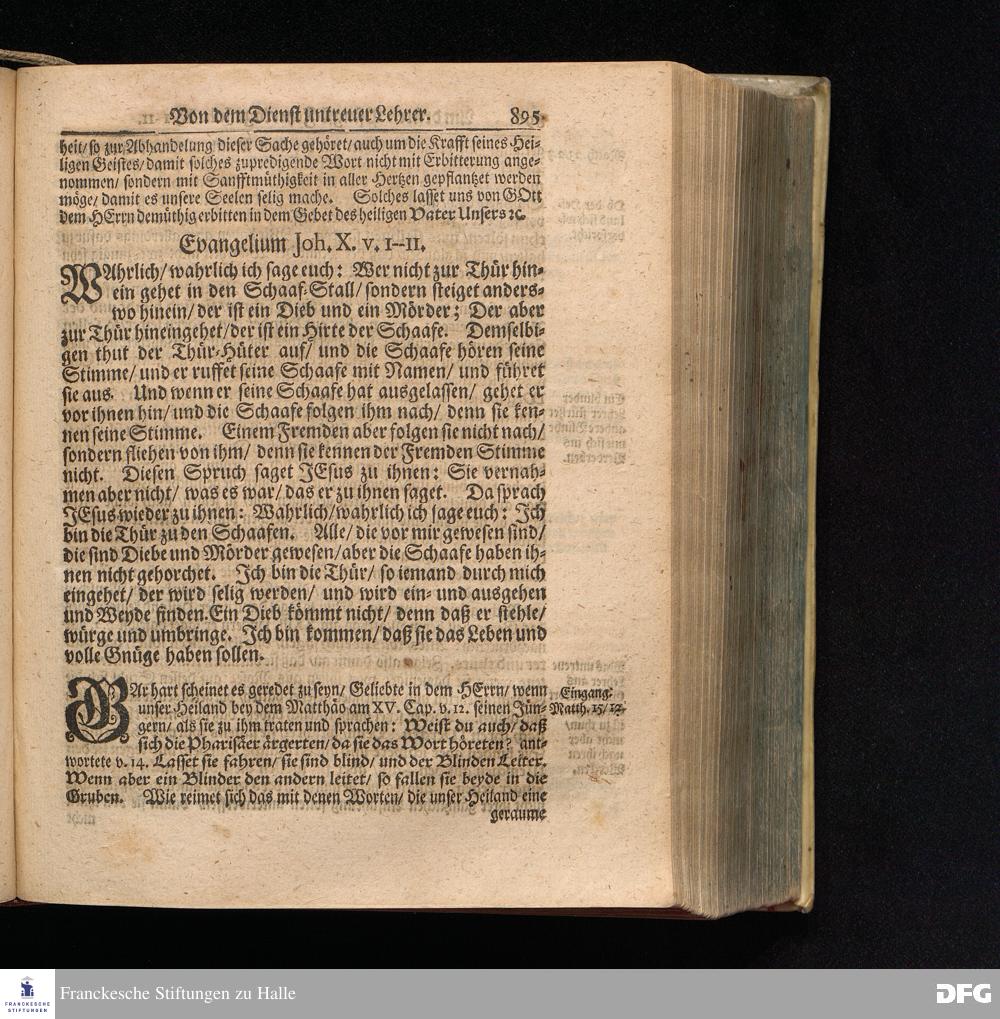 Von dem Dienst untreuer Lehrer. 895
heit/ so zur Abhandelung dieser Sache gehöret/ auch um die Krafft seines Hei-
ligen Geistes/ damit solches zupredigende Wort nicht mit Erbitterung ange-
nommen/ sondern mit Sanfftmüthigkeit in aller Hertzen gepflantzet werden
möge/ damit es unsere Seelen selig mache. Solches lasset uns von GOtt
dem HErrn demüthig erbitten in dem Gebet des heiligen Vater Unsers ꝛc.
Evangelium Joh. X. v. 1--11.
WAhrlich/ wahrlich ich sage euch: Wer nicht zur Thür hin-
ein gehet in den Schaaf-Stall/ sondern steiget anders-
wo hinein/ der ist ein Dieb und ein Mörder; Der aber
zur Thür hineingehet/ der ist ein Hirte der Schaafe. Demselbi-
gen thut der Thür-Hüter auf/ und die Schaafe hören seine
Stimme/ und er ruffet seine Schaafe mit Namen/ und führet
sie aus. Und wenn er seine Schaafe hat ausgelassen/ gehet er
vor ihnen hin/ und die Schaafe folgen ihm nach/ denn sie ken-
nen seine Stimme. Einem Fremden aber folgen sie nicht nach/
sondern fliehen von ihm/ denn sie kennen der Fremden Stimme
nicht. Diesen Spruch saget JEsus zu ihnen: Sie vernah-
men aber nicht/ was es war/ das er zu ihnen saget. Da sprach
JEsus wieder zu ihnen: Wahrlich/ wahrlich ich sage euch: Ich
bin die Thür zu den Schaafen. Alle/ die vor mir gewesen sind/
die sind Diebe und Mörder gewesen/ aber die Schaafe haben ih-
nen nicht gehorchet. Ich bin die Thür/ so iemand durch mich
eingehet/ der wird selig werden/ und wird ein- und ausgehen
und Weyde finden. Ein Dieb kömmt nicht/ denn daß er stehle/
würge und umbringe. Ich bin kommen/ daß sie das Leben und
volle Gnüge haben sollen.
GAr hart scheinet es geredet zu seyn/ Geliebte in dem HErrn/ wenn
Eingang:
unser Heiland bey dem Matthäo am XV. Cap. v. 12. seinen Jün-
Matth. 15/ 12.
gern/ als sie zu ihm traten und sprachen: Weist du auch/ daß
sich die Pharisäer ärgerten/ da sie das Wort höreten? ant-
wortete v. 14. Lasset sie fahren/ sie sind blind/ und der Blinden Leiter.
Wenn aber ein Blinder den andern leitet/ so fallen sie beyde in die
Gruben. Wie reimet sich das mit denen Worten/ die unser Heiland eine
geraume
FRANCKESCHE
STIFTUNGEN
Franckesche Stiftungen zu Halle
DFG